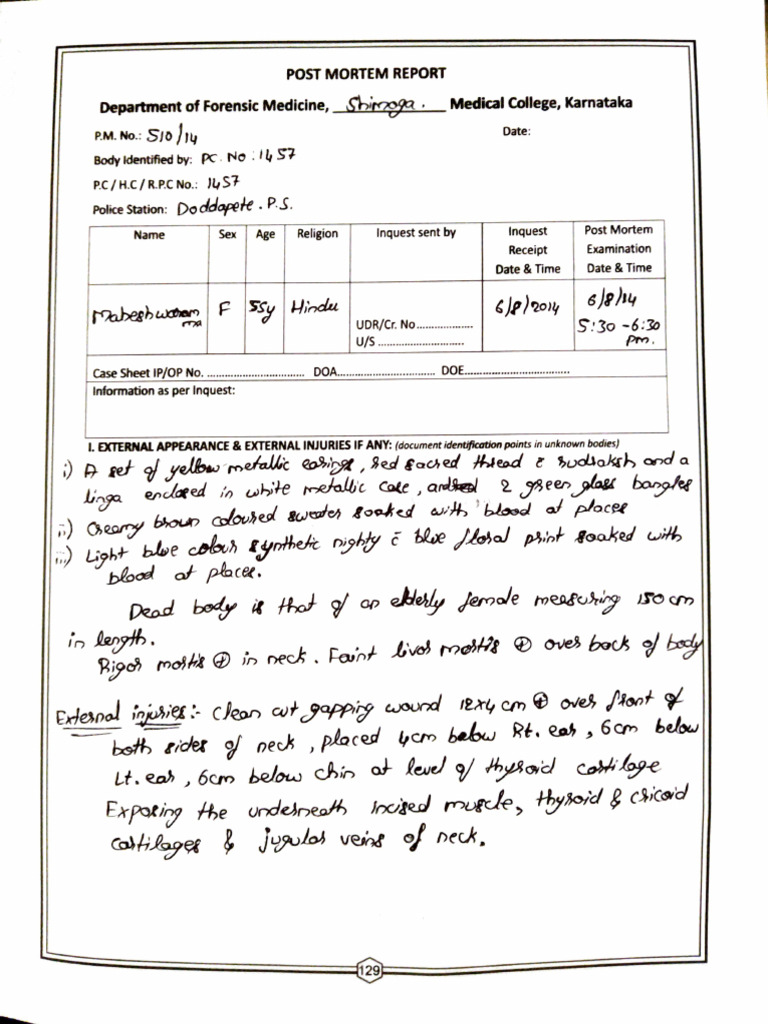 POST MORTEM REPORT
Department of Forensic Medicine, Shimoga. Medical College, Karnataka
P.M. No.: 510/14 Date:
Body Identified by: PC. No : 1457
P.C / H.C / R.P.C No.: 1457
Police Station: Doddapete. P.S.
Name Sex Age Religion Inquest sent by Inquest Receipt Date & Time Post Mortem Examination Date & Time
Maheshwaramma F 55y Hindu UDR/Cr. No................... U/S ............................. 6/8/2014 6/8/14 5:30 - 6:30 pm.
Case Sheet IP/OP No. ................................ DOA................................ DOE...................................
Information as per Inquest:
I. EXTERNAL APPEARANCE & EXTERNAL INJURIES IF ANY: (document identification points in unknown bodies)
i) A set of yellow metallic earings, red sacred thread c̄ rudraksh and a
linga enclosed in white metallic case, and 2 green glass bangles
ii) Creamy brown coloured sweater soaked with blood at places
iii) Light blue colour synthetic nighty c̄ blue floral print soaked with
blood at places.
Dead body is that of an elderly female measuring 150 cm
in length.
Rigor mortis ⊕ in neck. Faint livor mortis ⊕ over back of body
External injuries:- Clean cut gapping wound 12x4 cm ⊕ over front of
both sides of neck, placed 4cm below Rt. ear, 6cm below
Lt. ear, 6cm below chin at level of thyroid cartilage
Exposing the underneath incised muscle, thyroid & cricoid
cartilages & jugular veins of neck.
129